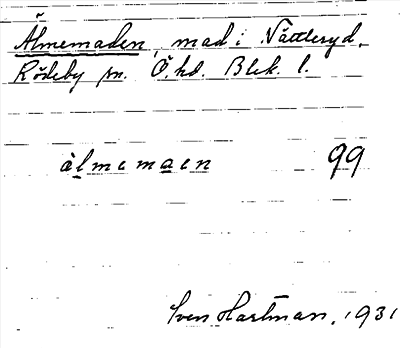 Älmemaden, mad i Nättleryd,
Rödeby sn. Ö hd. Blek. l.
älmemaen 99
Sven Hartman, 1931